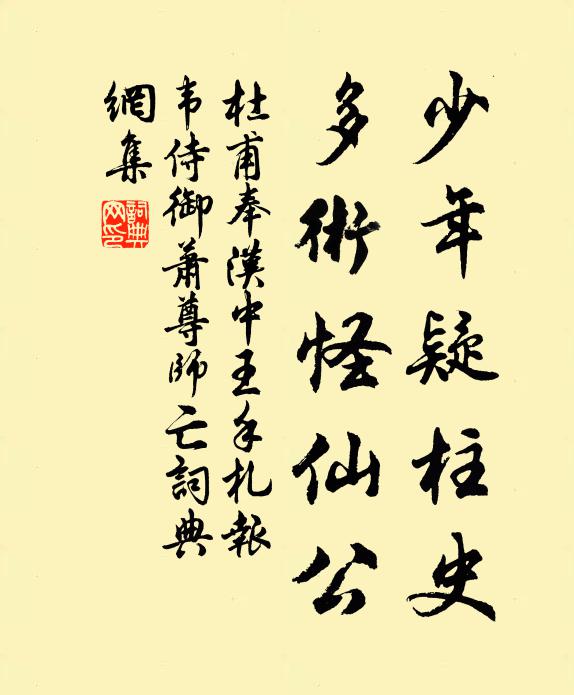 少年疑柱史
多術怪仙公
杜甫奉漢中王手札報
韦侍御蕭尊師亡詞典
網集
詞典
网印